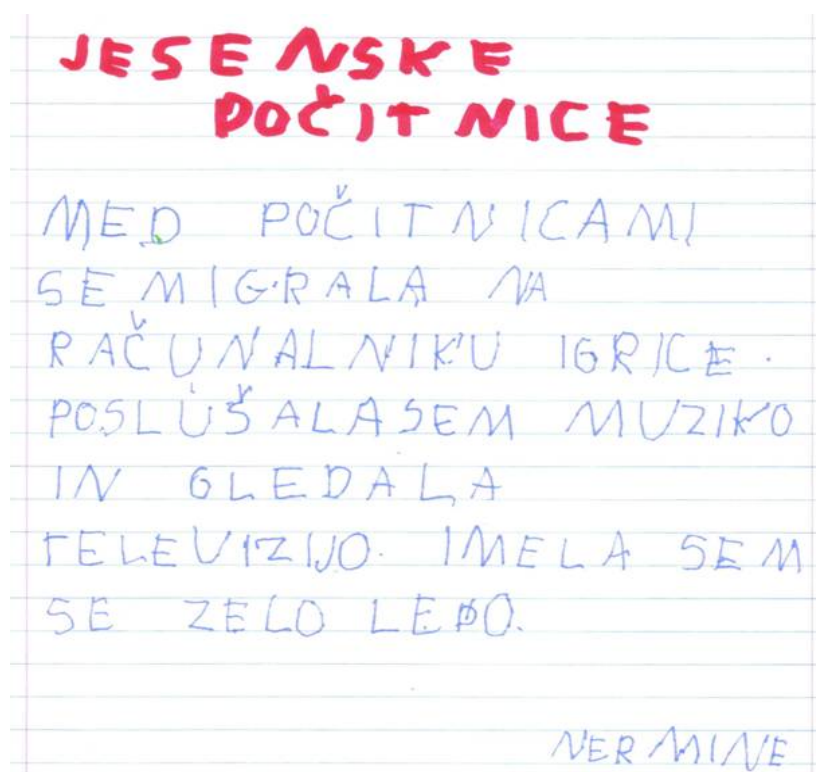 JESENSKE
POČITNICE
MED POČITNICAMI
SEM IGRALA NA
RAČUNALNIKU IGRICE.
POSLUŠALASEM MUZIKO
IN GLEDALA
TELEVIZIJO. IMELA SEM
SE ZELO LEPO.
NERMINE